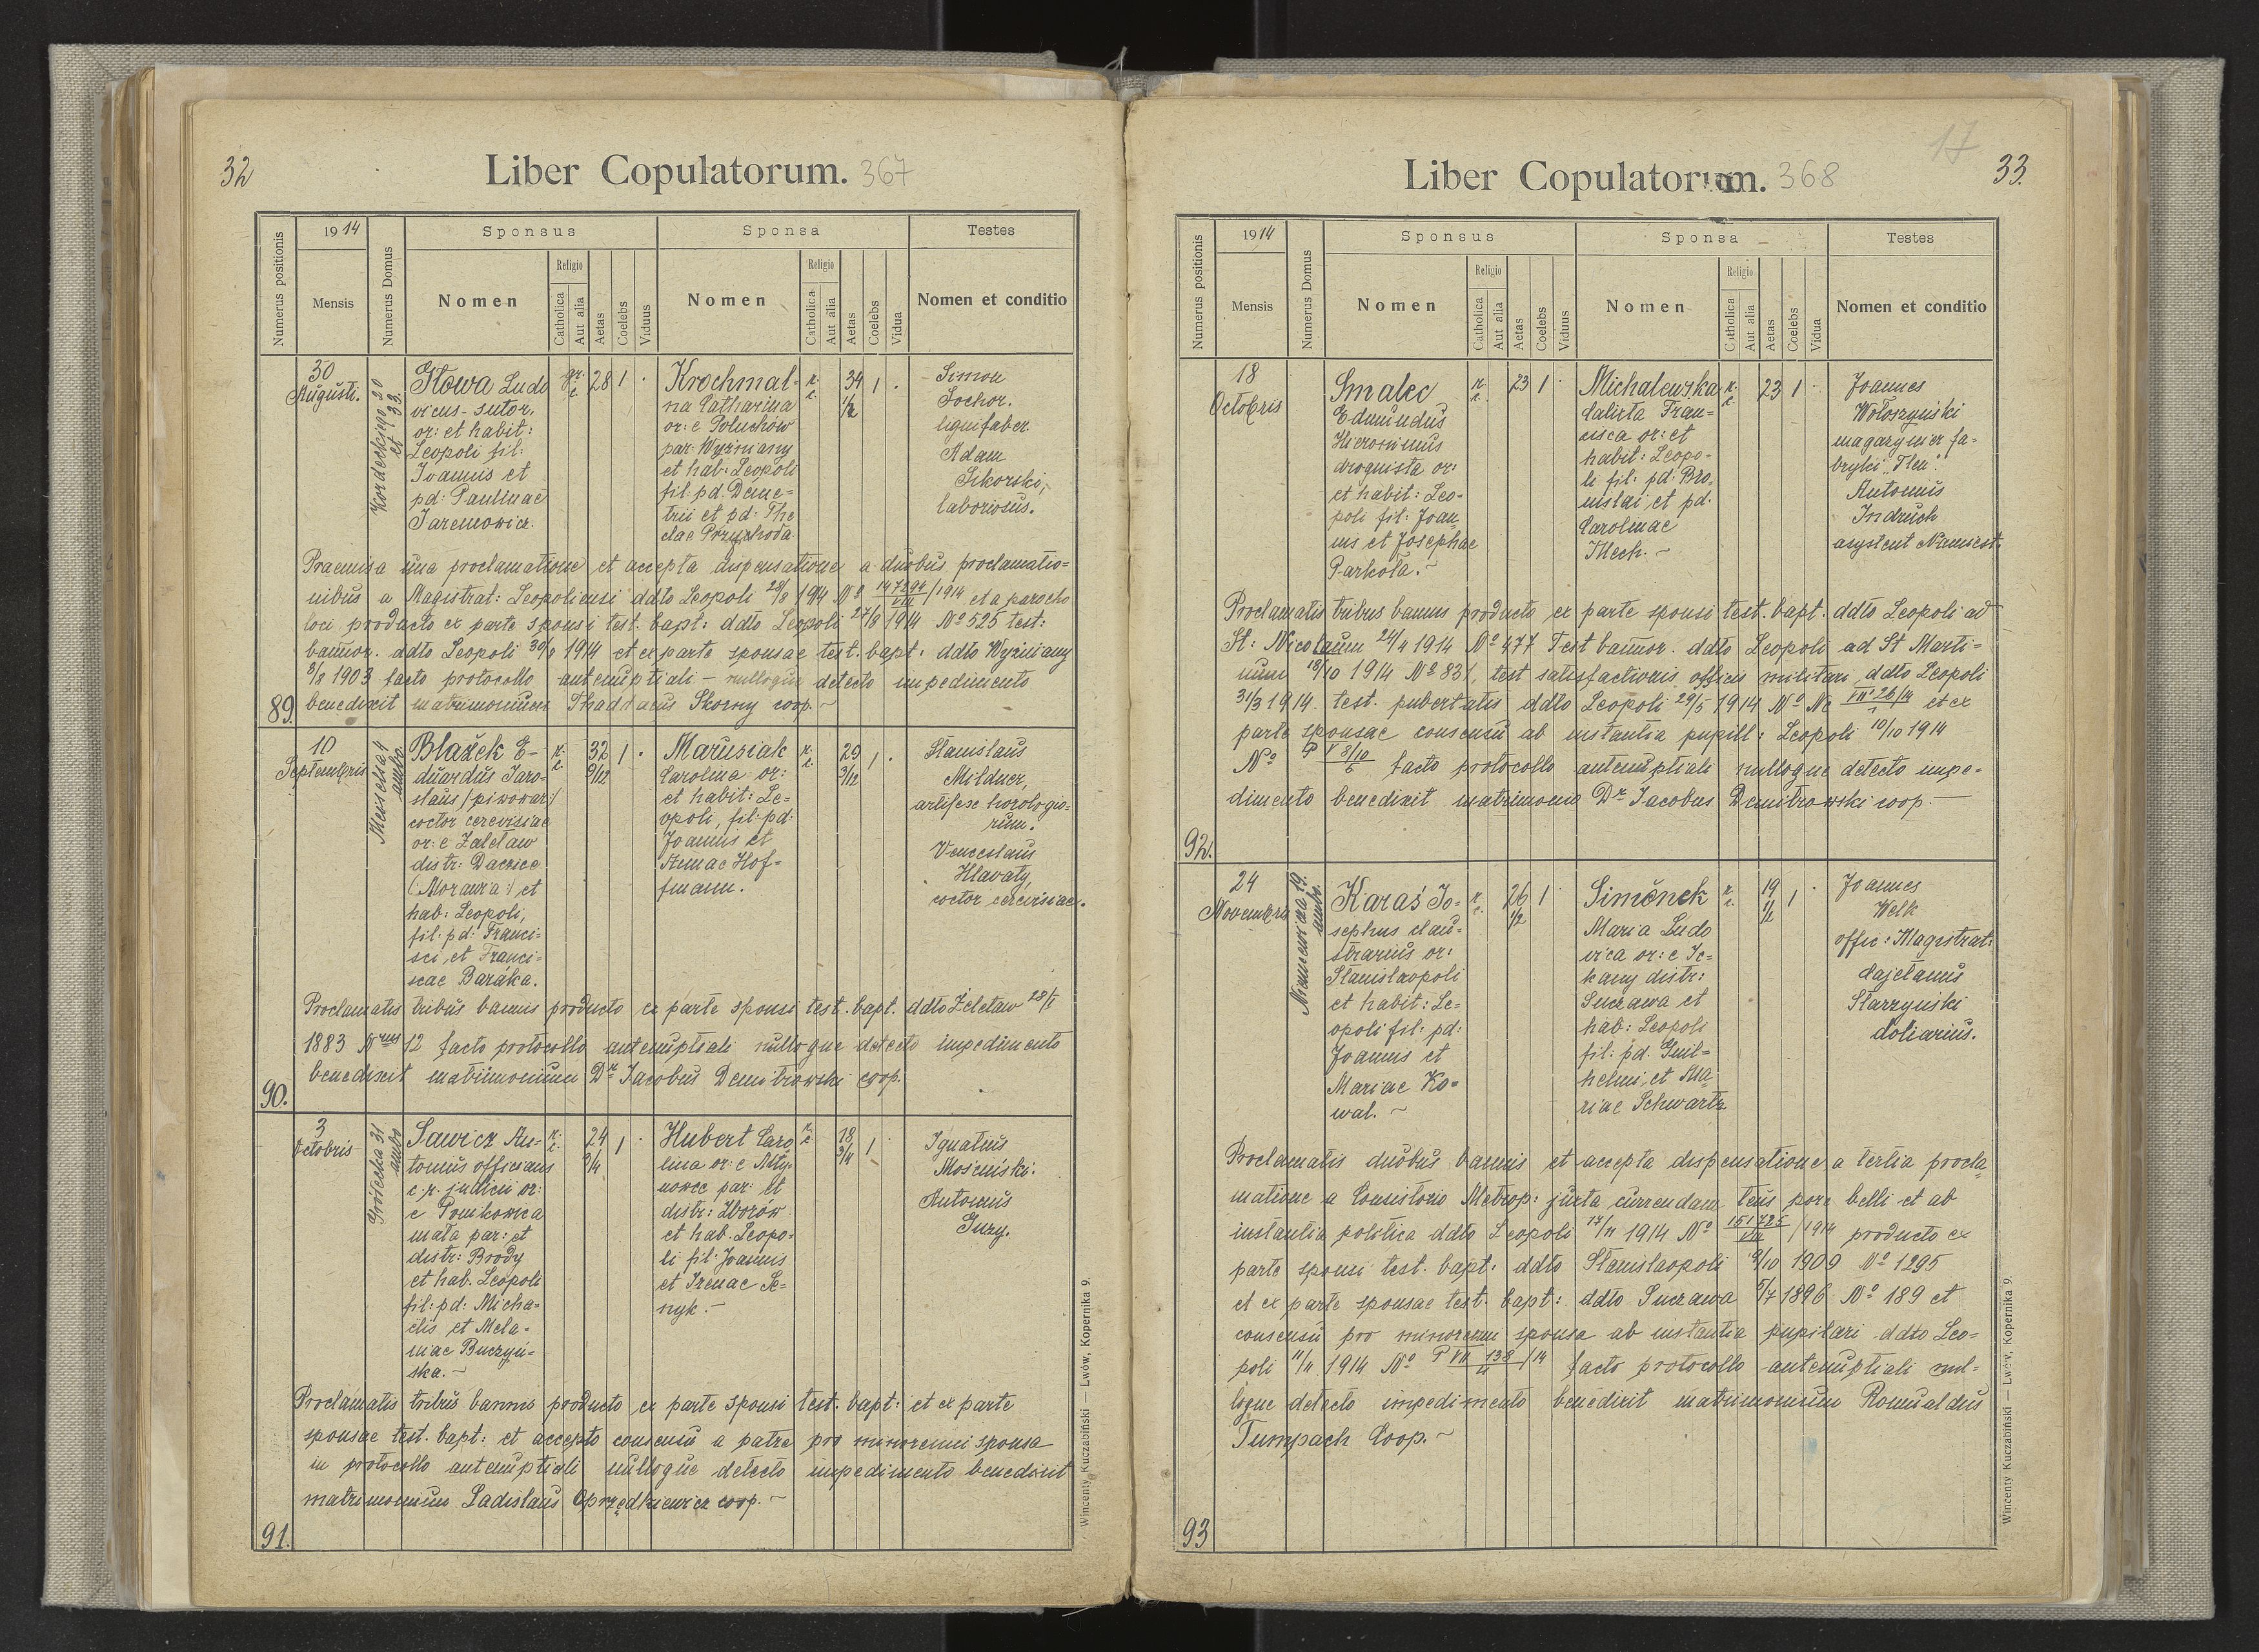 32
Liber Copulatorum. 367
Numerus positionis
1914
Mensis
Numerus Domus
Sponsus
Nomen
Religio
Catholica
Aut alia
Aetas
Coelebs
Viduus
Sponsa
Nomen
Religio
Catholica
Aut alia
Aetas
Coelebs
Vidua
Testes
Nomen et conditio
30
Augusti.
Kordeckiego 20
et 33.
Głowa Ludo
vicus - sutor,
or: et habit:
Leopoli fil:
Joannis et
pd: Paulinae
Jaremowicz.
gr.
c.
28 1 .
Krochmal-
na Catharina
or: e Poluchow
par: Wyżniany
et hab: Leopoli
fil: pd. Deme-
trii et pd: The
clae Przychoda
r.
c.
34 1 .
1/2
Simon
Sochor.
lignifaber.
Adam
Sikorski,
laboriosus.
Praemissa una proclamatione et accepta dispensatione a duobus proclamatio-
nibus a Magistrat: Leopoliensi ddto Leopoli 28/8 1914 No 147294/VIII /1914 et a parocho
loci producto ex parte sponsi test. bapt: ddto Leopoli 27/8 1914 No 525 test:
bannor. ddto Leopoli 30/8 1914 et ex parte sponsae test. bapt: ddto Wyżniany
3/8 1903 facto protocollo antenuptiali - nulloque detecto impedimento
89. benedixit matrimonium Thaddaeus Skorny coop. ~
10
Septembris
Meiselsa 4
ambo.
Blažek E-
duardus Jaro-
slaus /:piwowar:/
coctor cerevisiae
or: e Zaletaw
distr: Daczice
(:Morawia:) et
hab: Leopoli,
fil: pd: Franci-
sci et Franci-
scae Baráka.
r.
c.
32 1 .
9/12
Marusiak
Carolina or:
et habit: Le-
opoli, fil: pd:
Joannis et
Annae Hof-
fmann.
r.
c.
29 1 .
3/12
Stanislaus
Mildner,
artifex horologio-
rum.
Venceslaus
Hlavatý
coctor cerevisiae.
Proclamatis tribus bannis producto ex parte sponsi test. bapt. ddto Želetaw 28/1
1883 Nrus 12 facto protocollo antenuptiali nulloque detecto impedimento
benedixit matrimonium Dr Jacobus Demitrowski coop.
90.
3
Octobris
Grodecka 31
ambo
Sawicz An-
tonius officians
c. r. judicii or:
e Ponikowica
mała par: et
distr: Brody
et hab. Leopoli
fil: pd: Micha-
elis et Mela-
niae Buczyń-
ska. ~
r.
c.
24 1 .
3/4
Hubert Caro
lina or: e Mły-
nowce par: et
distr: Zborów
et hab. Leopo-
li fil: Joannis
et Irenae Se-
nyk. -
r.
c.
18 1 .
3/4
Ignatius
Mościński.
Antonius
Guzy.
Proclamatis tribus bannis producto ex parte sponsi test. bapt: et ex parte
sponsae test. bapt: et accepto consensu a patre pro minorenni sponsa
in protocollo antenuptiali nulloque detecto impedimento benedixit
matrimonium Ladislaus Oprzędkiewicz coop. ~
91.
Wincenty Kuczabiński — Lwów, Kopernika 9.
17
33.
Liber Copulatorum. 368
Numerus positionis
1914
Mensis
Numerus Domus
Sponsus
Nomen
Religio
Catholica
Aut alia
Aetas
Coelebs
Viduus
Sponsa
Nomen
Religio
Catholica
Aut alia
Aetas
Coelebs
Vidua
Testes
Nomen et conditio
18
Octobris
Smalec
Edmundus
Hieronimus
droguista or:
et habit: Leo-
poli fil: Joan
nis et Josephae
Parkoła. ~
r.
c.
23 1 .
Michalewska
Calixta Fran-
cisca or: et
habit: Leopo-
li fil: pd: Bro-
nislai et pd.
Carolinae
Mech. ~
r.
c.
23 1 .
Joannes
Wołoszyński
magazynier fa-
bryki "Tlen".
Antonius
Indruch
asystent Namiest.
Proclamatis tribus bannis producto ex parte sponsi test. bapt. ddto Leopoli ad
St: Nicolaum 24/4 1914 No 477 Test bannor. ddto Leopoli ad St Marti-
num 18/10 1914 No 831, test satisfactionis officii militari ddto Leopoli
31/3 1914. test. pubertatis ddto Leopoli 29/5 1914 No Nc VII 26/14 / 1 et ex
parte sponsae consensu ab instantia pupill: Leopoli 10/10 1914
No P V 8/10 / 6 facto protocollo antenuptiali nulloque detecto impe-
dimento benedixit matrimonio Dr Jacobus Demitrowski coop. -
92.
24
Novembris
Niemcewicza 19.
ambo.
Karaś Jo-
sephus clau-
strarius or:
Stanislaopoli
et habit: Le-
opoli fil: pd:
Joannis et
Mariae Ko-
wal. ~
r.
c.
26 1 .
1/2
Simónek
Maria Ludo
vica or: e Ic-
kany distr:
Suczawa et
hab: Leopoli
fil: pd. Guil-
helmi et Ma-
riae Schwartz
r.
c.
19 1 .
1/2
Joannes
Welk
offic: Magistrat:
Cajetanus
Starzyński
doliarius.
Proclamatis duobus bannis et accepta dispensatione a tertia procla
matione a Consistorio Metrop: juxta currendam teus pore belli et ab
instantia politica ddto Leopoli 17/11 1914 No 151725/VIII /1914 producto ex
parte sponsi test. bapt: ddto Stanislaopoli 9/10 1909 No 1295
et ex parte sponsae test. bapt: ddto Suczawa 5/7 1896 No 189 et
consensu pro minorenni sponsa ab instantia pupilari ddto Leo-
poli 11/11 1914 No P VII 138/14 facto protocollo antenuptiali nul-
loque detecto impedimento benedixit matrimonium Romualdus
Tumpach Coop. ~
93
Wincenty Kuczabiński — Lwów, Kopernika 9.